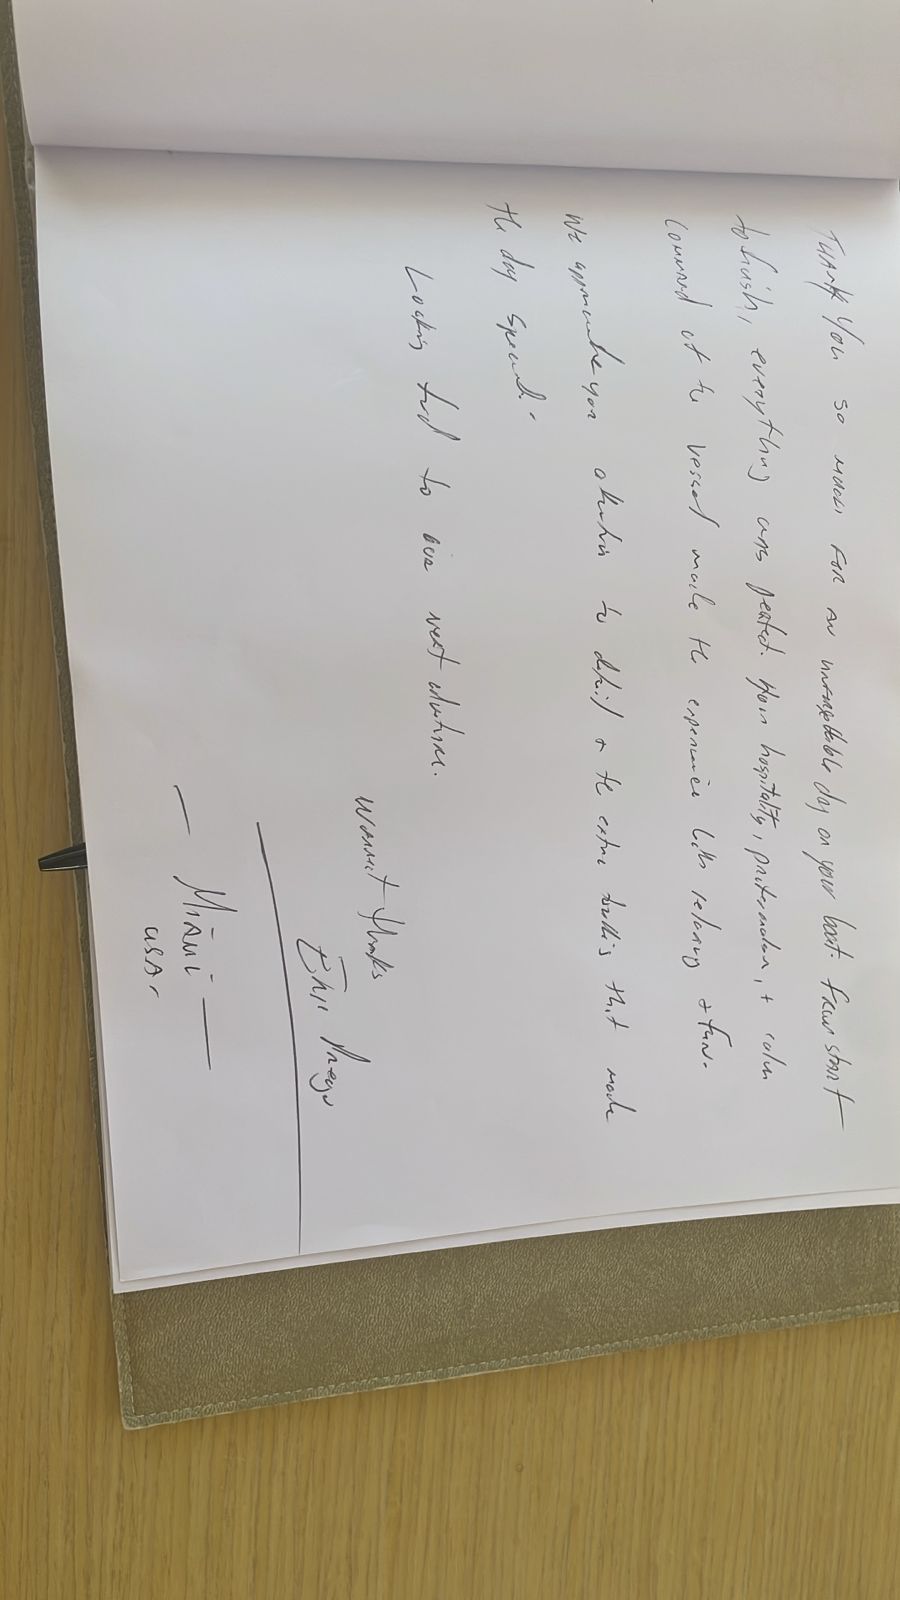 THANK YOU SO MUCH FOR AN unforgettable day on your boat. From START
to finish, everything was perfect. Your hospitality, professionalism, + calm
command of the vessel made the experience both relaxing + fun.
We appreciate your attention to detail + the extra touches that made
the day special.
Looking fwd to our next adventure.
Warmest thanks
— MIAMI —
USA